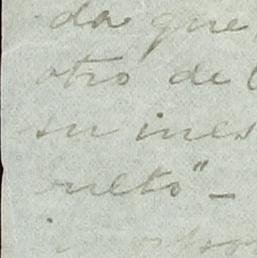 da que
otro de
su ines
cueto" -